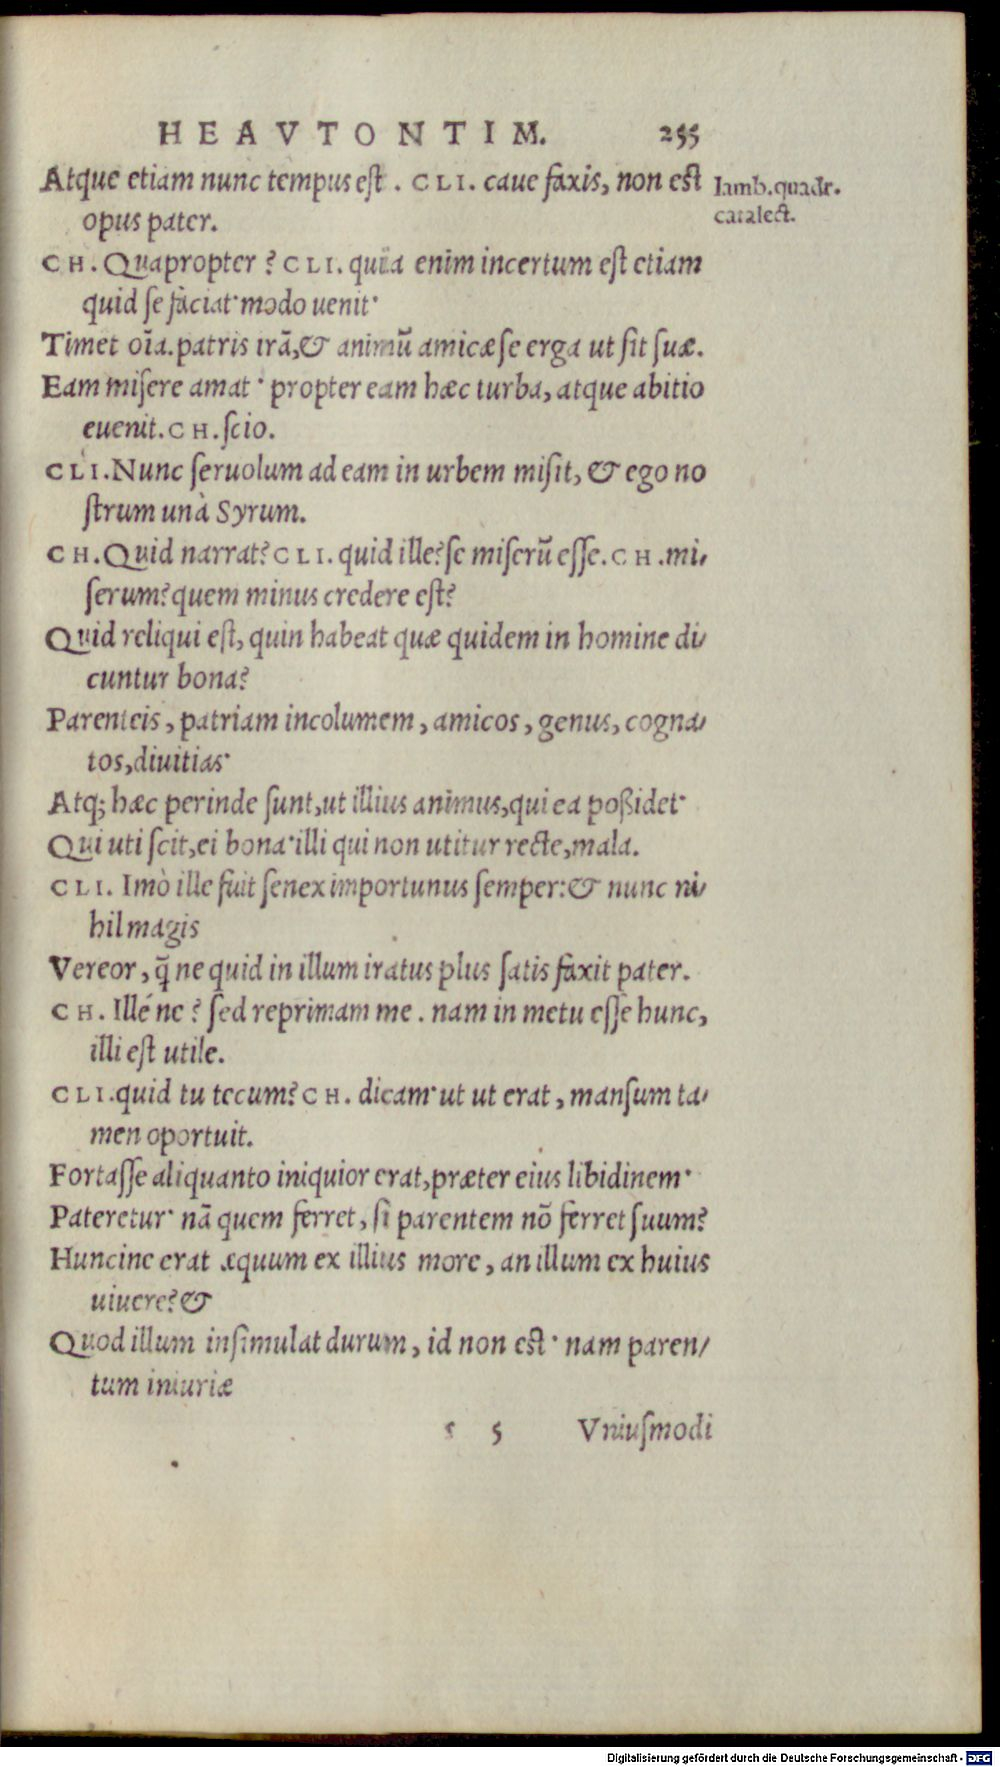 HEAVTONTIM. 255
Atque etiam nunc tempus eſt . CLI. caue faxis, non est
Iamb.quadr.
catalect.
opus pater.
CH. Quapropter ? CLI. quia enim incertum eſt etiam
quid ſe faciat· modo uenit·
Timet oīa. patris irā, & animū amicæ ſe erga ut ſit ſuæ.
Eam miſere amat · propter eam hæc turba, atque abitio
euenit. CH. ſcio.
CLI. Nunc ſeruolum ad eam in urbem miſit, & ego no
ſtrum unà Syrum.
CH. Quid narrat? CLI. quid ille? ſe miſerū eſſe. CH. mi/
ſerum? quem minus credere eſt?
Quid reliqui eſt, quin habeat quæ quidem in homine di/
cuntur bona?
Parenteis, patriam incolumem, amicos, genus, cogna/
tos, diuitias·
Atq; hæc perinde ſunt, ut illius animus, qui ea poßidet·
Qui uti ſcit, ei bona· illi qui non utitur recte, mala.
CLI. Imò ille fuit ſenex importunus ſemper: & nunc ni/
hil magis
Vereor, q̄ ne quid in illum iratus plus ſatis faxit pater.
CH. Illé ne ? ſed reprimam me . nam in metu eſſe hunc,
illi eſt utile.
CLI. quid tu tecum? CH. dicam· ut ut erat, manſum ta/
men oportuit.
Fortaſſe aliquanto iniquior erat, præter eius libidinem·
Pateretur· nā quem ferret, ſi parentem nō ferret ſuum?
Huncine erat æquum ex illius more, an illum ex huius
uiuere? &
Quod illum inſimulat durum, id non est· nam paren/
tum iniuriæ
s 5 Vniuſmodi
Digitalisierung gefördert durch die Deutsche Forschungsgemeinschaft - DFG